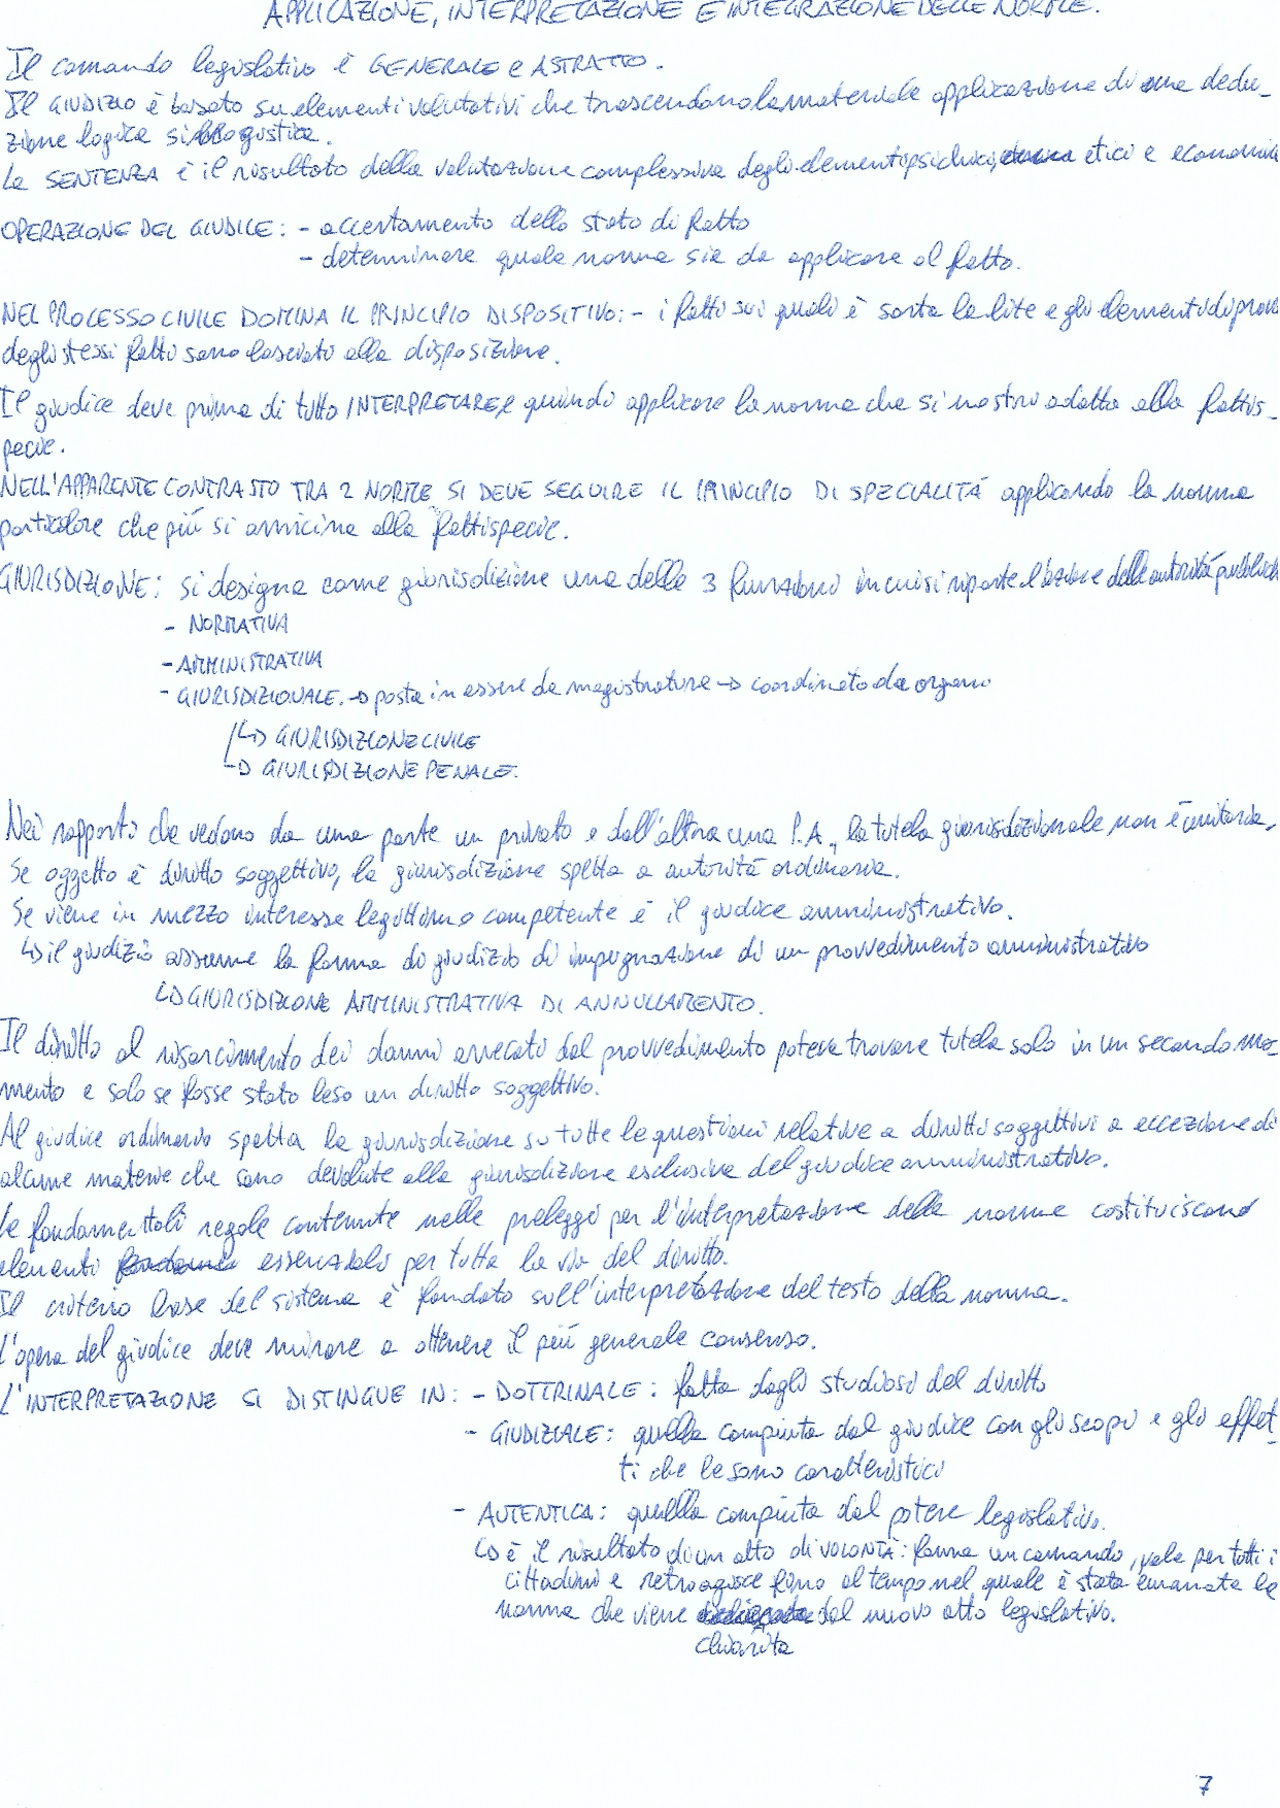 APPLICAZIONE, INTERPRETAZIONE E INTEGRAZIONE DELLE NORME.
Il comando legislativo è GENERALE e ASTRATTO.
Il GIUDIZIO è basato su elementi valutativi che trascendono la materiale applicazione di una dedu-
zione logica sillogistica.
La SENTENZA è il risultato della valutazione complessiva degli elementi psichici, etici e economici
OPERAZIONE DEL GIUDICE: - accertamento dello stato di fatto
- determinare quale norma sia da applicare al fatto.
NEL PROCESSO CIVILE DOMINA IL PRINCIPIO DISPOSITIVO: - i fatti sui quali è sorta la lite e gli elementi di prova
degli stessi fatti sono lasciati alla disposizione.
Il giudice deve prima di tutto INTERPRETARE, e quindi applicare la norma che si mostri adatta alla fattis-
pecie.
NELL'APPARENTE CONTRASTO TRA 2 NORME SI DEVE SEGUIRE IL PRINCIPIO DI SPECIALITÀ applicando la norma
particolare che più si avvicina alla fattispecie.
GIURISDIZIONE: si designa come giurisdizione una delle 3 funzioni in cui si riparte l'azione delle autorità pubbliche
- NORMATIVA
- AMMINISTRATIVA
- GIURISDIZIONALE. → posta in essere da magistratura → coordinato da organi
↳ GIURISDIZIONE CIVILE
→ GIURISDIZIONE PENALE.
Nei rapporti che vedono da una parte un privato e dall'altra una P.A., la tutela giurisdizionale non è unitaria.
Se oggetto è diritto soggettivo, la giurisdizione spetta a autorità ordinaria.
Se viene in mezzo interesse legittimo competente è il giudice amministrativo.
↳ il giudizio assume la forma di giudizio di impugnazione di un provvedimento amministrativo
↳ GIURISDIZIONE AMMINISTRATIVA DI ANNULLAMENTO.
Il diritto al risarcimento dei danni arrecati dal provvedimento poteva trovare tutela solo in un secondo mo-
mento e solo se fosse stato leso un diritto soggettivo.
Al giudice ordinario spetta la giurisdizione su tutte le questioni relative a diritti soggettivi a eccezione di
alcune materie che sono devolute alla giurisdizione esclusiva del giudice amministrativo.
Le fondamentali regole contenute nelle preleggi per l'interpretazione delle norme costituiscono
elementi essenziali per tutta la vita del diritto.
Il criterio base del sistema è fondato sull'interpretazione del testo della norma.
L'opera del giudice deve mirare a ottenere il più generale consenso.
L'INTERPRETAZIONE SI DISTINGUE IN: - DOTTRINALE: fatta dagli studiosi del diritto
- GIUDIZIALE: quella compiuta dal giudice con gli scopi e gli effet-
ti che le sono caratteristici
- AUTENTICA: quella compiuta dal potere legislativo.
↳ è il risultato di un atto di VOLONTÀ: forma un comando, vale per tutti i
cittadini e retroagisce fino al tempo nel quale è stata emanata la
norma che viene dal nuovo atto legislativo.
chiarita
7